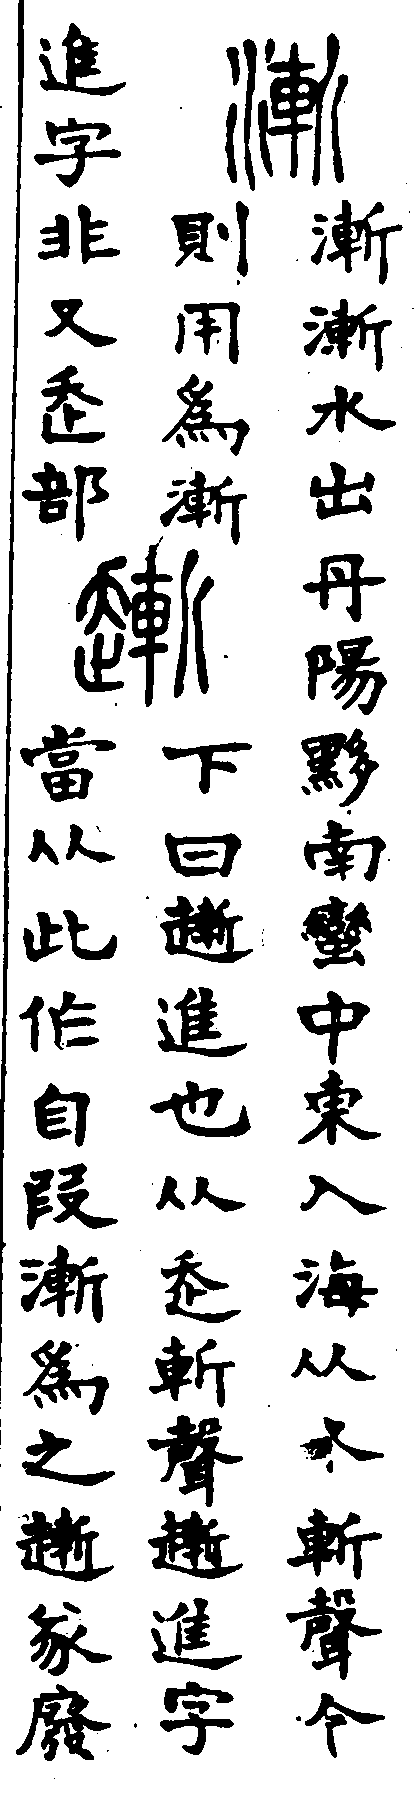 漸
漸漸水出丹陽黟南蠻中東入海从水斬聲今
則用爲漸
進字非又走部
𧽯
下曰𧽯進也从走斬聲𧽯進字
當从此作自叚漸爲之𧽯篆廢